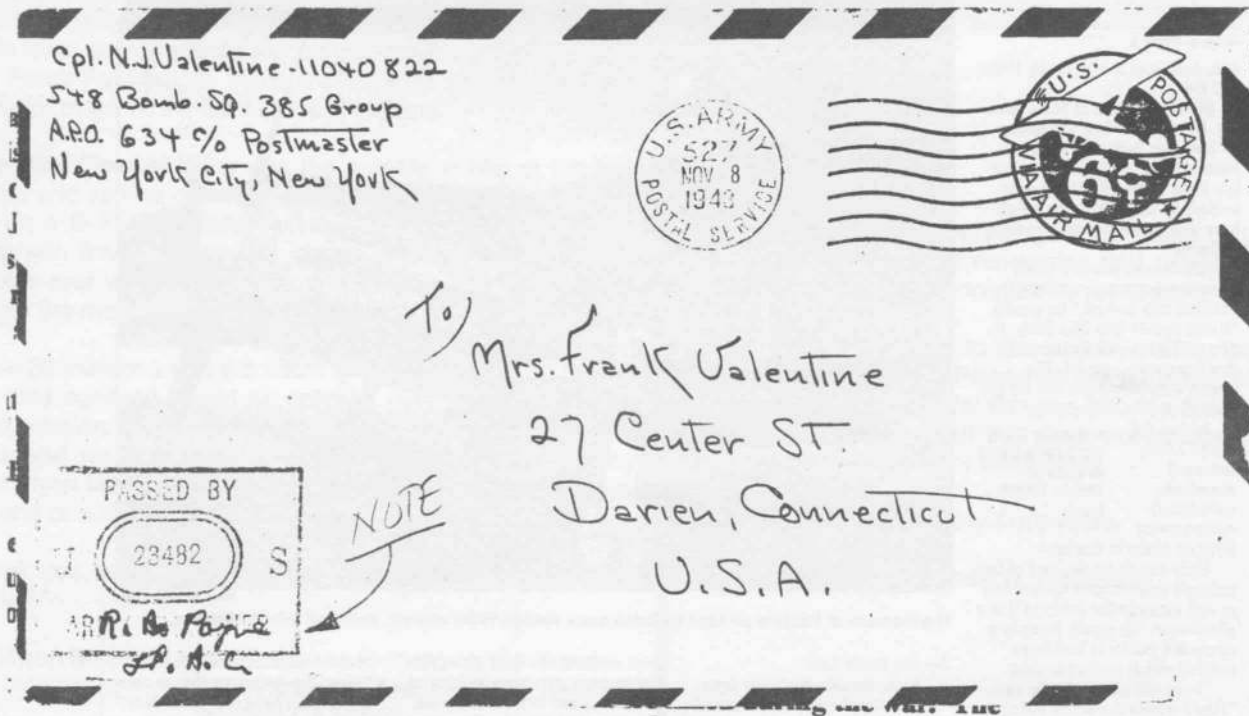 Cpl. N.J. Valentine - 11040822
548 Bomb. SQ. 385 Group
A.P.O. 634 c/o Postmaster
New York City, New York
U.S. ARMY
527
NOV 8
1943
POSTAL SERVICE
U.S. POSTAGE
VIA AIR MAIL
To
Mrs. Frank Valentine
27 Center ST.
Darien, Connecticut
U.S.A.
PASSED BY
U 23482 S
NOTE
R. B. Payne
during the war. The